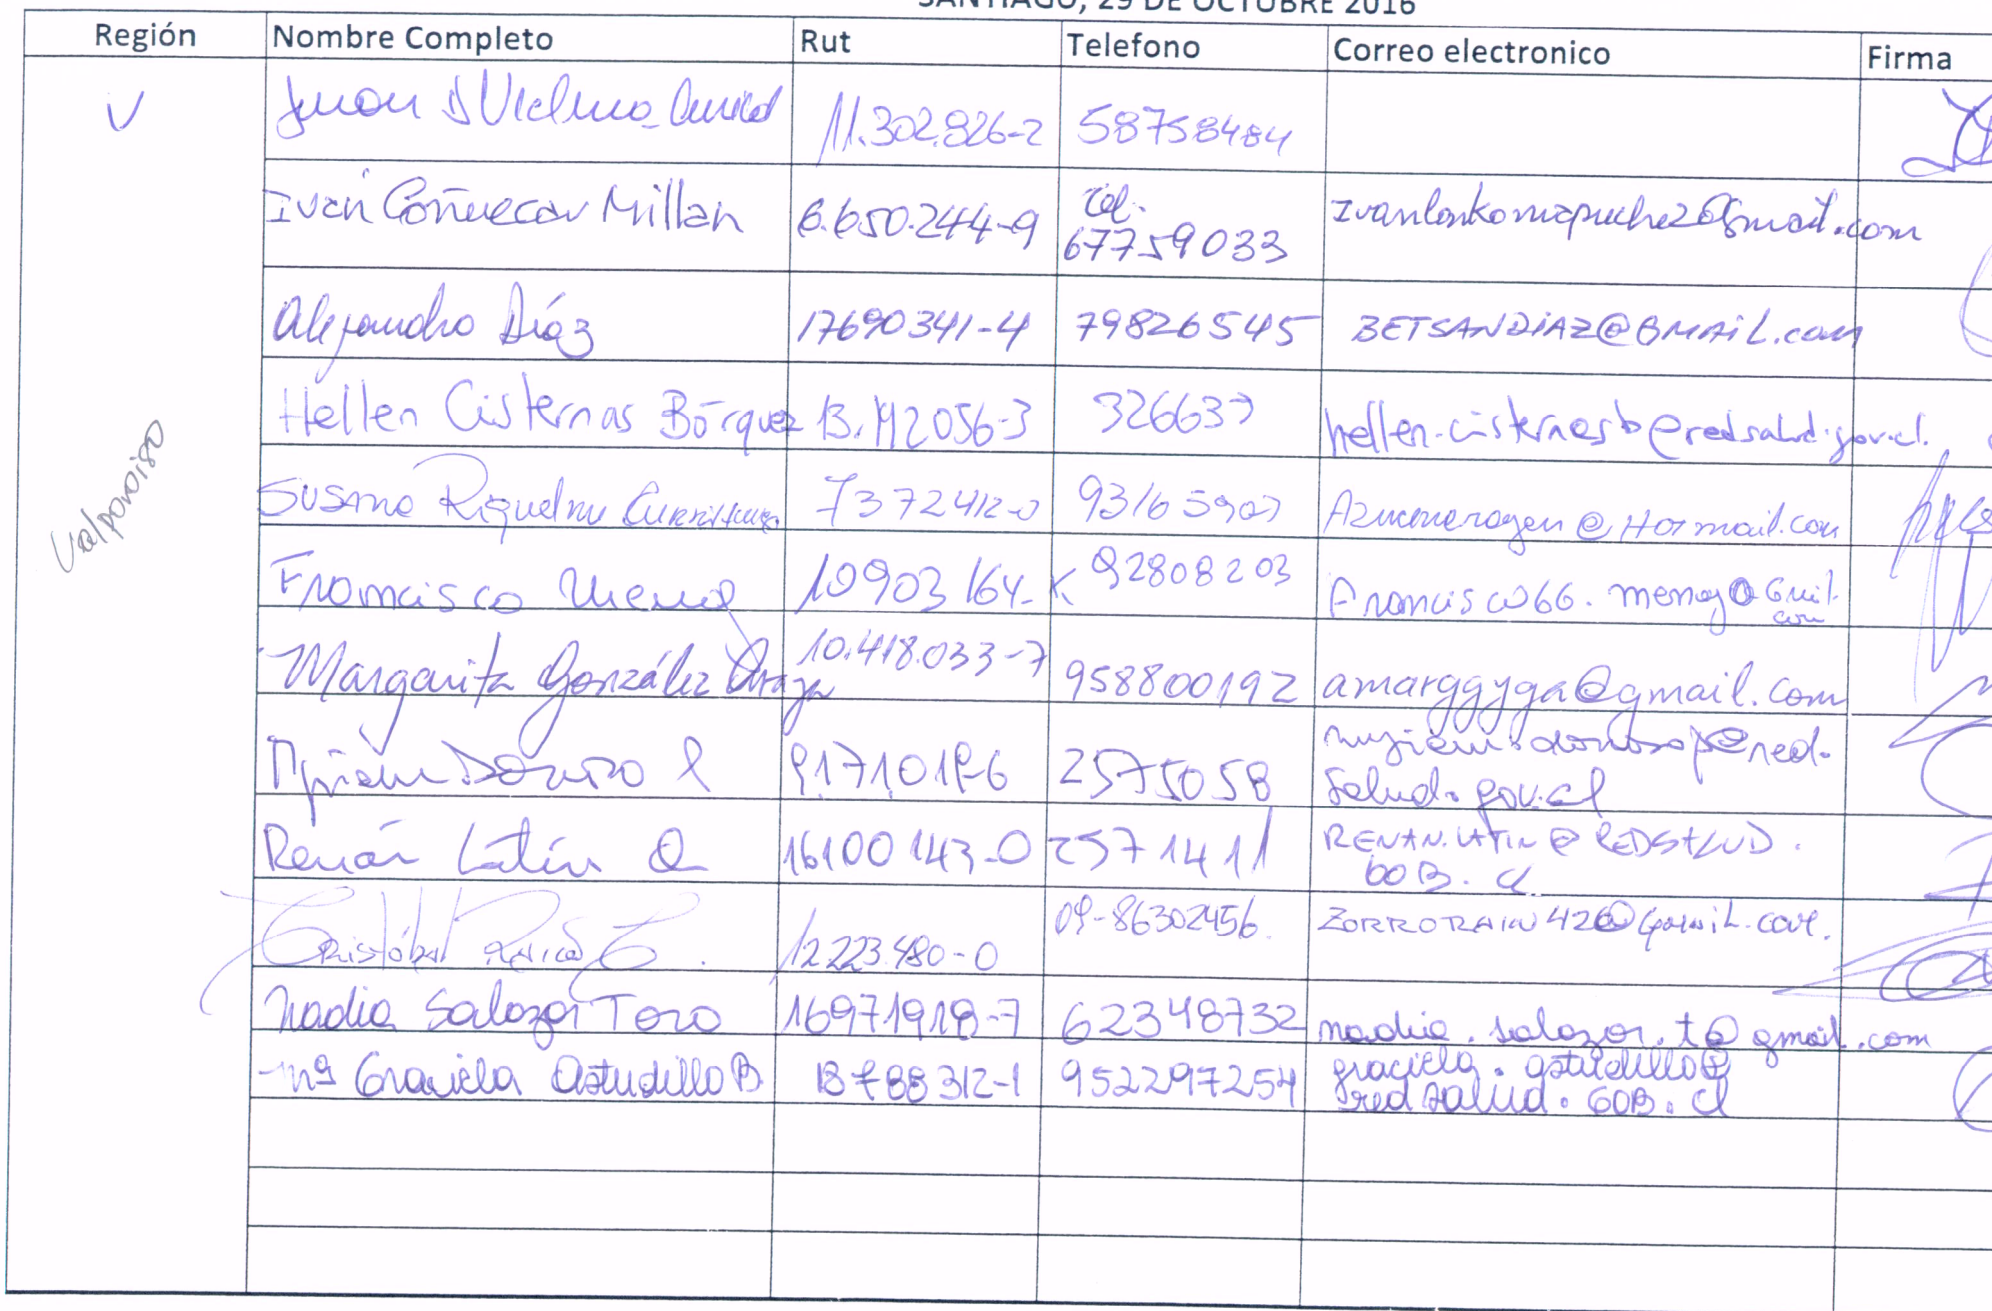 SANTIAGO, 29 DE OCTUBRE 2016
Región Nombre Completo Rut Telefono Correo electronico Firma
V Juan 11.302.826-2 58758484
Iván Coñuecar Millan 6.650.244-9 Cel. 67759033 Ivanlonkomapuche2@gmail.com
Alejandro Díaz 17690341-4 79826545 BETSANDiAZ@GMAiL.com
Hellen Cisternas Bórquez 13.192056-3 326637 hellen.cisternasb@redsalud.gov.cl.
Valparaiso
Susana Riquelme 7372412-0 93165907 @Hotmail.com
Francisco Mena 10903164-K 92808203 Francisco66.mena@Gmil.com
Margarita González Araya 10.418.033-7 958800192 amarggyga@gmail.com
Myriam Donoso P 2575058 myriam.donosop@red.
salud.gov.cl
Renán Latín Q 16100143-0 2571411 RENAN.LATIN@REDSALUD.
GOB.CL
Cristóbal 12.223.480-0 09-86302456. ZORRORAIN42@gmail.com.
Nadia Salazar Toro 16971918-7 62348732 nadia.salazar.t@gmail.com
Mª Graciela Astudillo B. 952297254 graciela.astudillo@
redsalud.GOB.cl